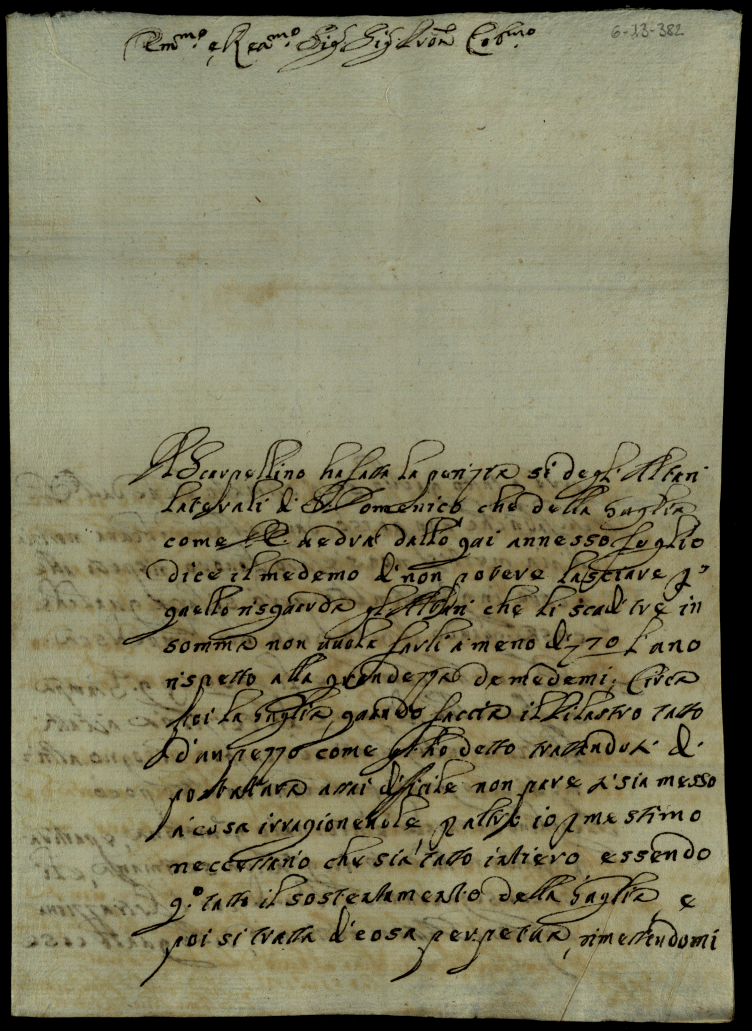 Em.mo e Rea.mo Sig.r Sig.r Pron Col.mo
6-13-382
Il Scarpellino ha fatta la perizia si degli Altari
laterali di S. Domenico che della Guglia
come V.E. uedrà dallo qui annesso foglio
dice il medemo di non potere lasciare p.
quello risguarda gl'Altari che li scudi tre in
somma non uuole farli a meno di 70 l'uno
rispetto alla grandezza de medemi; Circa
poi la Guglia, quando faccia il Pilastro tutto
d'un pezzo come gl'ho detto trattandosi di
portatura assai dificile non pare si sia messo
a cosa irragioneuole p altro io p me stimo
neccessario che sia tutto intiero essendo
q.o tutto il sostentamento della Guglia e
poi si tratta di cosa perpetua, rimettendomi